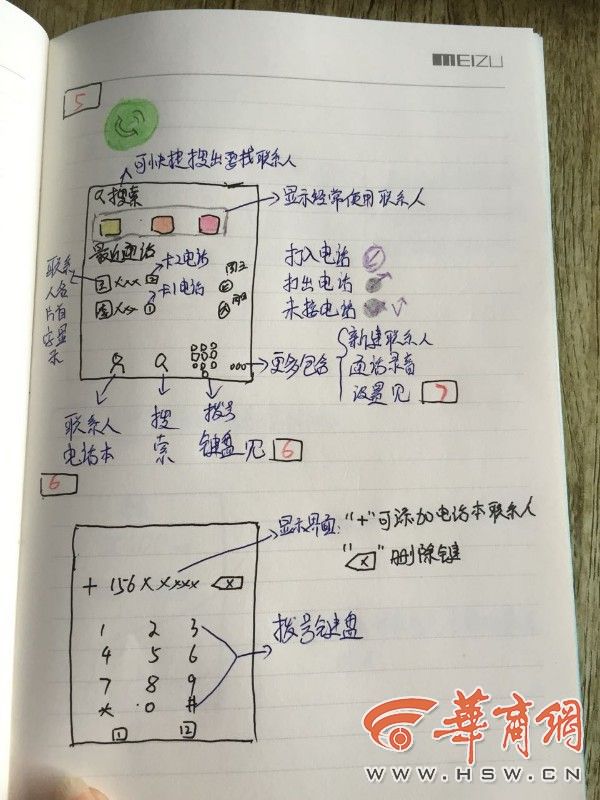 MEIZU
5
可快捷搜出要找联系人
搜索
显示经常使用联系人
最近通话
卡2电话
xxx 2
卡1电话
xx 1
联系
人名
片首
字显
示
打入电话
打出电话
未接电话
更多包含
新建联系人
通话录音
设置见 7
联系人
电话本
搜
索
拨号
键盘见 6
6
显示界面:"+"可添加电话本联系人
"x"删除键
+ 156xxxxx x
1 2 3
4 5 6
7 8 9
* 0 #
拨号键盘
1 12
華商網
WWW.HSW.CN